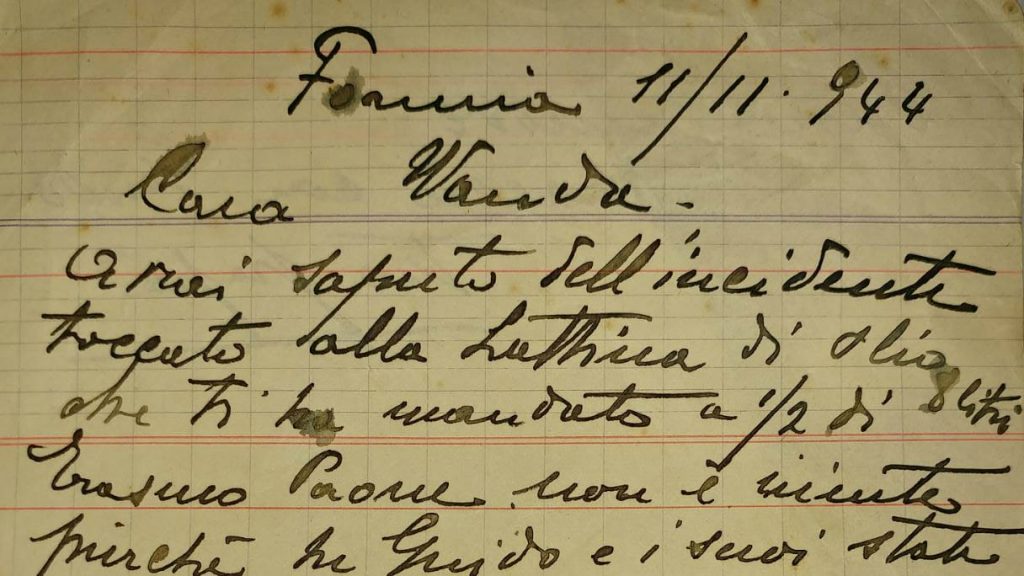 Formia 11/11. 944
Cara Wanda.
Avrai saputo dell'incidente
toccato alla Lattina di olio
che ti ho mandato a 1/2 di 8 litri
Erasmo Paone non è niente
purchè tu Guido e i suoi state